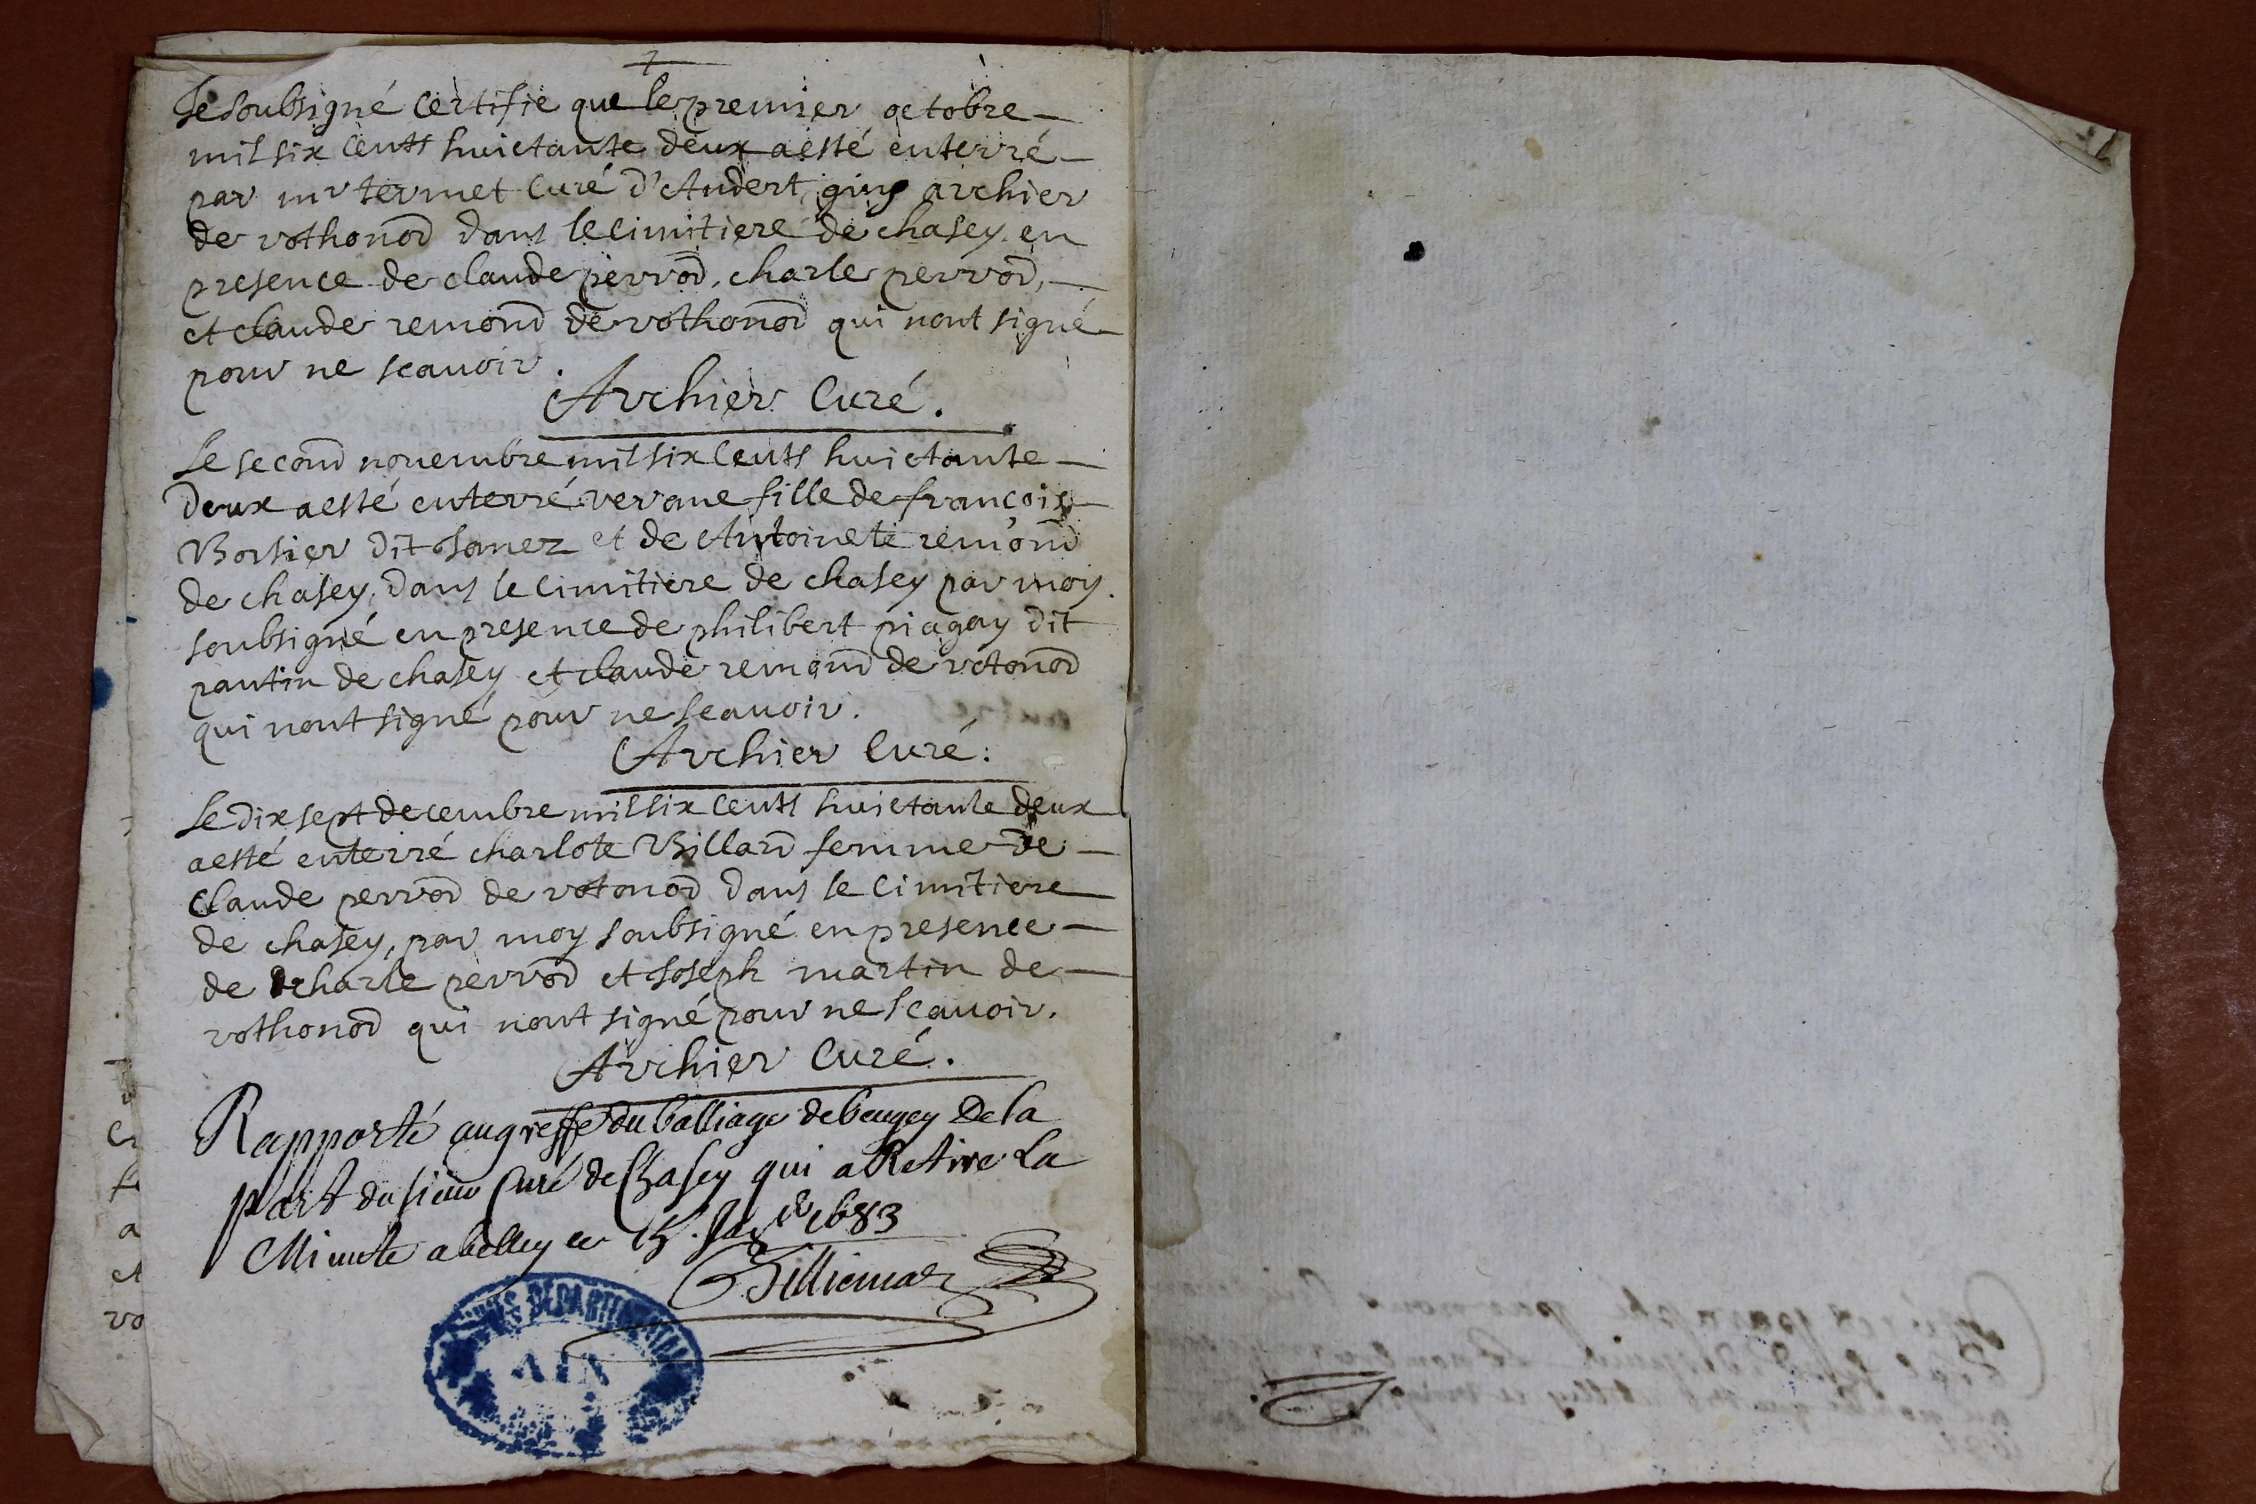 Je soubsigné certifie que le premier octobre
mil six cents huictante deux a esté enterré
par mr termet curé d'Andert, guy archier
de vothonod dans le cimitiere de chasey en
presence de claude perrod, charle perrod,
et claude remond de vothonod qui nont signé
pour ne scavoir.
Archier Curé.
Le second novembre mil six cents huictante
deux a esté enterré verane fille de françois
Borsier dit Janez et de Antoinete remond
de chasey, dans le cimitiere de chasey par moy
soubsigné en presence de philibert piagay dit
pantin de chasey et claude remond de votonod
qui nont signé pour ne scavoir.
Archier Curé.
Le dix sept decembre mil six cents huictante deux
a esté enterré charlote Billard femme de
claude perrod de votonod dans le cimitiere
de chasey, par moy soubsigné en presence
de charle perrod et Joseph martin de
vothonod qui nont signé pour ne scavoir.
Archier Curé.
Rapporté au greffe du balliage de beugey De la
part du sieur Curé de Chasey qui a Retire La
Minute a belley ce 15. 1683
Billiemaz
DÉPARTEMENTALES
AIN